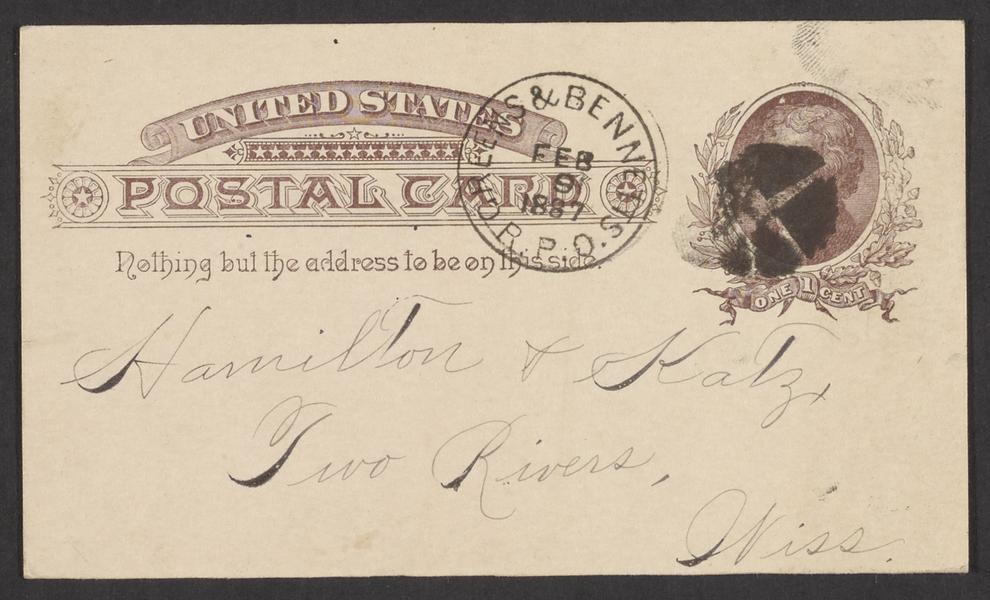 UNITED STATES
POSTAL CARD
Nothing but the address to be on this side.
& BENNETTS
FEB
9
1887
R.P.O.
ONE 1 CENT
Hamilton & Katz,
Two Rivers,
Wiss.